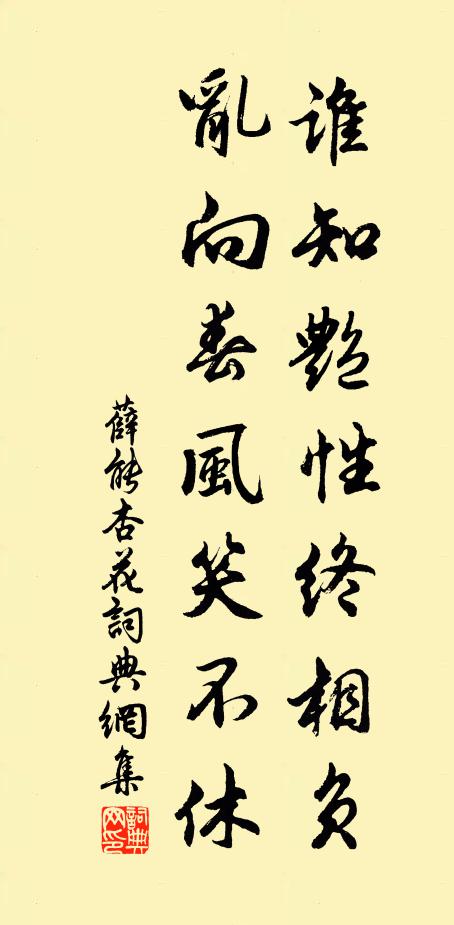 誰知艷性終相負
亂向春風笑不休
薛能杏花詞典網集
詞典网印